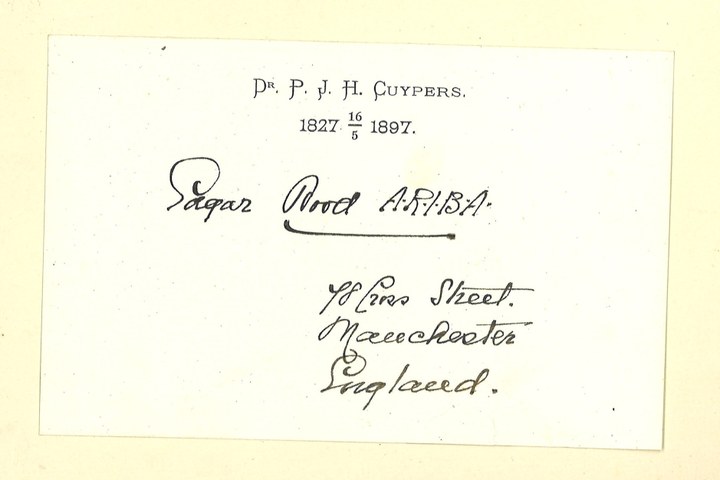 Dr. P. J. H. Cuypers.
1827 16/5 1897.
Edgar Wood A.R.I.B.A.
78 Cross Street.
Manchester
England.